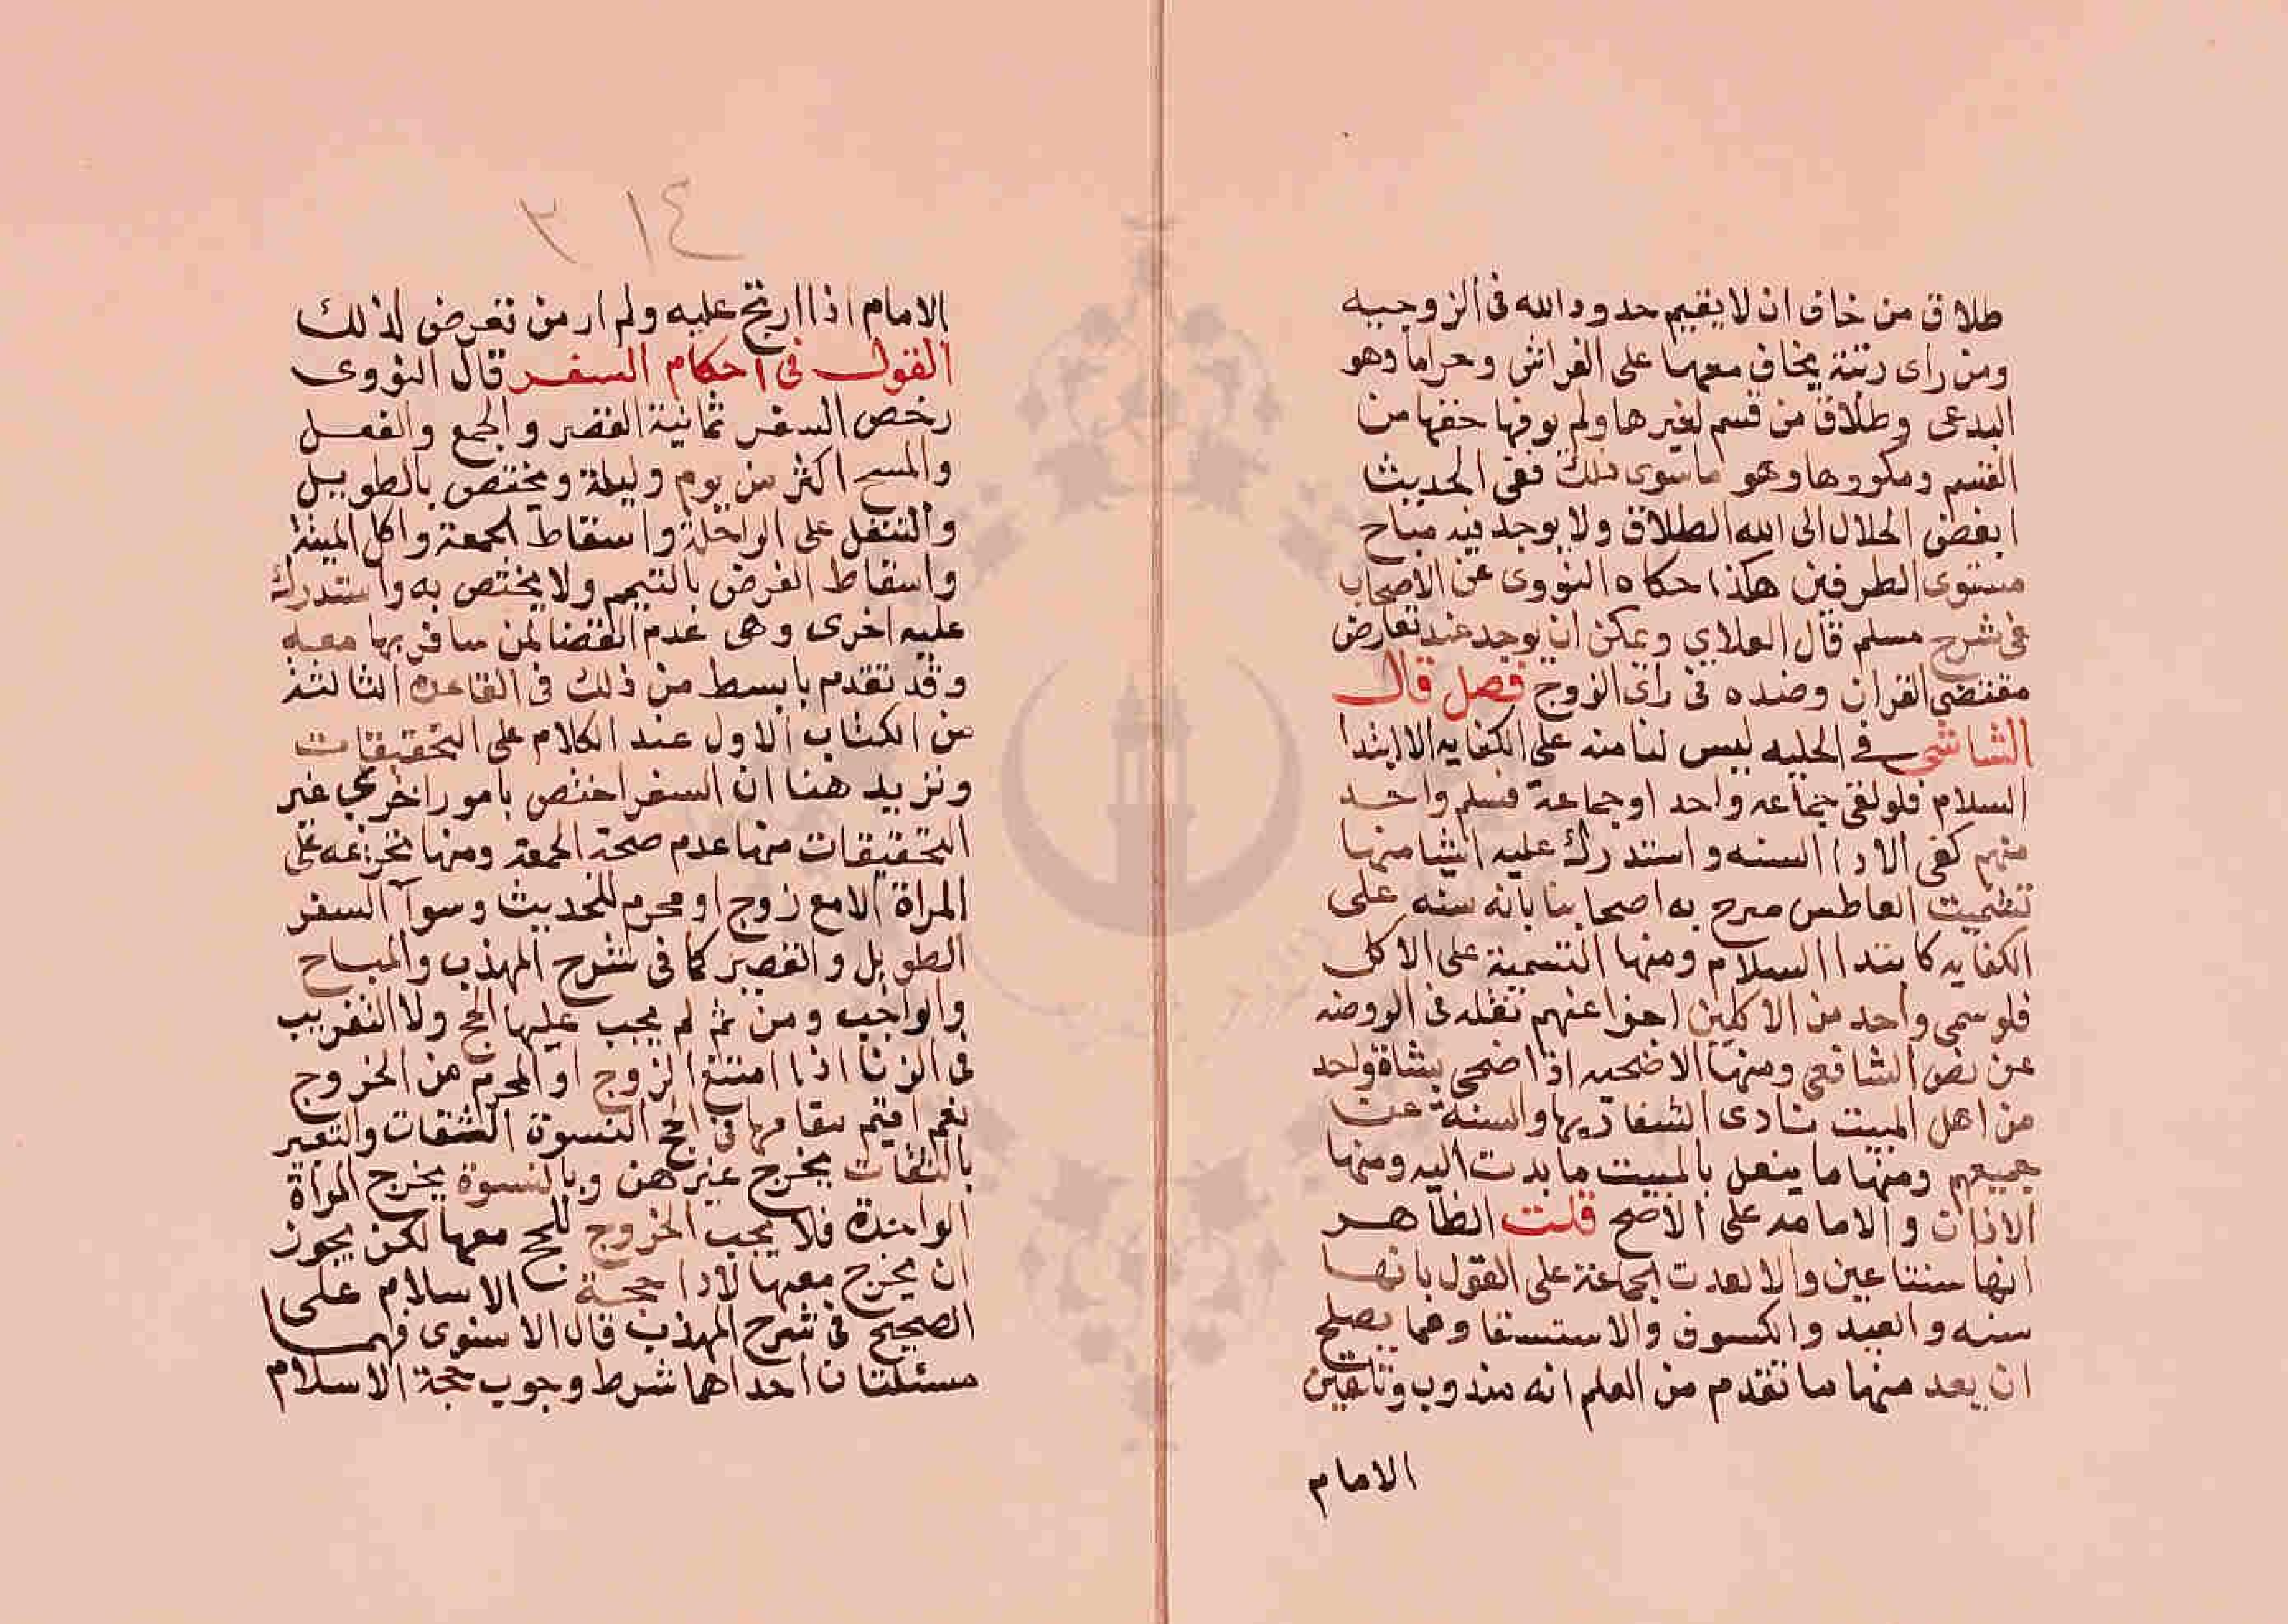 طلاق من خاف ان لا يقيم حدود الله فى الزوجيه
ومن راى ريبة يخاف معها على الفراش وحراما وهو
البدعى وطلاق من قسم لغيرها ولم يوفها حقها من
القسم ومكروها وهو ما سوى ذلك ففى الحديث
ابغض الحلال الى الله الطلاق ولا يوجد فيه مباح
مستوى الطرفين هكذا حكاه النووى عن الاصحاب
فى شرح مسلم قال العلاي ويمكن ان يوجد عند تعارض
مقتضى الفراق وضده فى راى الزوج فصل قال
الشاشى فى الحليه ليس لنا سنه على الكفايه الا ابتدا
السلام فلو لقى جماعه واحد او جماعة فسلم واحد
منهم كفى الادا السنه واستدرك عليه اشيا منها
تشميت العاطس صرح به اصحابنا بانه سنه على
الكفايه كابتدا السلام ومنها التسمية على الاكل
فلو سمى واحد من الاكلين اجزا عنهم نقله فى الروضه
عن نص الشافعى ومنها الاضحيه اذا ضحى بشاة واحد
من اهل البيت تادى الشعار بها والسنة عن
جميعهم ومنها ما يفعل بالميت ما بدت اليه ومنها
الاذان والاقامه على الاصح قلت الظاهر
انها سنتا عين والا لعدت الجماعة على القول بانها
سنه والعيد والكسوف والاستسقا ومما يصلح
ان يعد منها ما تقدم من العلم انه مندوب وتلقين
الامام
٣١٤
الامام اذا ارتج عليه ولم ار من تعرض لذلك
القول فى احكام السفر قال النووى
رخص السفر ثمانية القصر والجمع والفطر
والمسح اكثر من يوم وليلة ويختص بالطويل
والتنفل على الراحلة واسقاط الجمعة واكل الميتة
واسقاط الفرض بالتيمم ولا يختص به واستدرك
عليه اخرى وهى عدم القضا لمن سافر بها معه
وقد تقدم بابسط من ذلك فى القاعدة الثالثة
من الكتاب الاول عند الكلام على التخفيفات
ونزيد هنا ان السفر اختص بامور اخرى غير
التخفيفات منها عدم صحة الجمعة ومنها تحريمه على
المراة الا مع زوج او محرم للحديث وسوآ السفر
الطويل والقصير كما فى شرح المهذب والمباح
والواجب ومن ثم لم يجب عليها الحج ولا التغريب
فى الزنا اذا امتنع الزوج او المحرم من الخروج
نعم اقيم مقامها فى الحج النسوة الثقات والتعبير
بالثقات يخرج غيرهن وبالنسوة يخرج المراة
الواحدة فلا يجب الخروج للحج معها لكن يجوز
ان يخرج معها لادا حجة الاسلام على
الصحيح فى شرح المهذب قال الاسنوى فهما
مسئلتان احداهما شرط وجوب حجة الاسلام